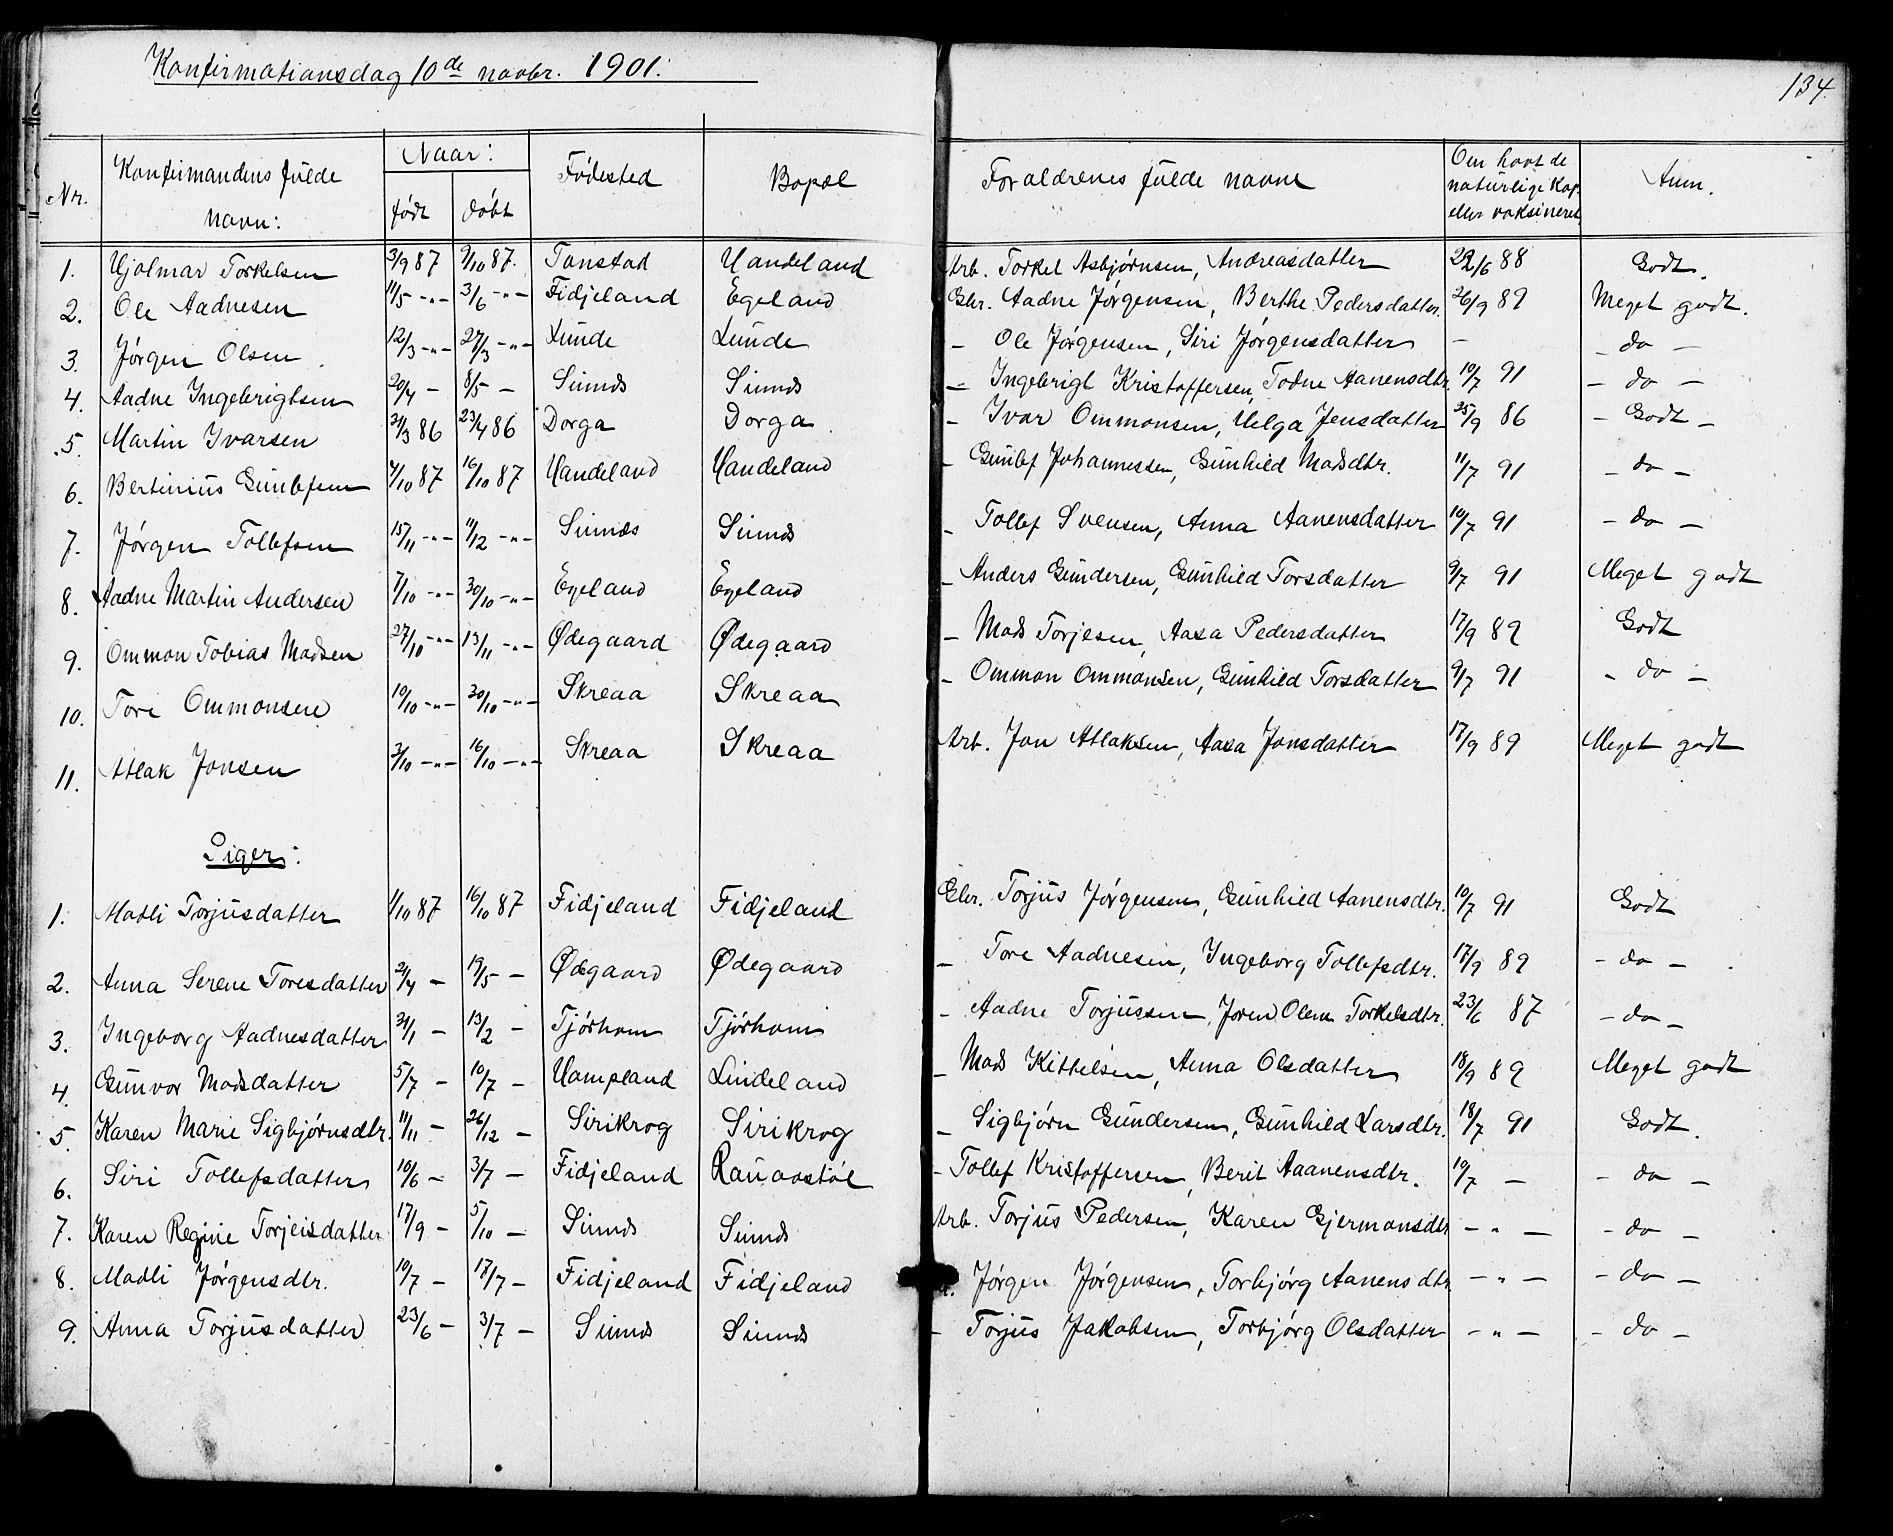 Konfirmationsdag 10de novbr. 1901.
134.
Nr. Konfirmandens fulde navn: Naar: født døbt Fødested Bopæl Forældrenes fulde navne Om havt de naturlige Kop. eller vaksineret Anm.
1. Hjalmar Torkelsen 3/9 87 9/10 87. Tonstad Haudeland Arb. Torkel Asbjørnsen, Andreasdatter 22/6 88 Godt.
2. Ole Aadnesen 11/5 -"- 3/6 -"- Fidjeland Egeland Gbr. Aadne Jørgensen, Berthe Pedersdatter. 26/9 89 Meget godt.
3. Jørgen Olsen 12/3 -"- 27/3 -"- Lunde Lunde – Ole Jørgensen, Siri Jørgensdatter – – do –
4. Aadne Ingebrigtsen 20/4 – 8/5 – Sinnes Sinnes – Ingebrigt Kristoffersen, Todne Aanensdtr. 10/7 91 – do –
5. Martin Ivarsen 31/3 86 23/4 86 Dorga Dorga – Ivar Ommonsen, Helga Jensdatter 25/9 86 – Godt –
6. Bertinius Gunlefsen 7/10 87 16/10 87 Haudeland Haudeland – Gunlef Johannessen, Gunhild Madsdtr. 11/7 91 – do –
7. Jørgen Tollefsen 15/11 -"- 11/12 -"- Sinnes Sinnes – Tollef Svensen, Anna Aanensdatter 10/7 91 – do –
8. Aadne Martin Andersen 7/10 -"- 30/10 -"- Egeland Egeland – Anders Gundersen, Gunhild Torsdatter 9/7 91 Meget godt
9. Ommon Tobias Madsen 27/10 -"- 13/11 -"- Ødegaard Ødegaard – Mads Torjesen, Aasa Pedersdatter 17/9 89 Godt
10. Tore Ommonsen 10/10 -"- 30/10 -"- Skreaa Skreaa – Ommon Ommonsen, Gunhild Torsdatter 9/7 91 – do –
11. Atlak Jonsen 3/10 -"- 16/10 -"- Skreaa Skreaa Arb. Jon Atlaksen, Aasa Jonsdatter 17/9 89 Meget godt
Piger:
1. Madli Torjusdatter 1/10 87 16/10 87 Fidjeland Fidjeland Gbr. Torjus Jørgensen, Gunhild Aanensdtr. 10/7 91 Godt
2. Anna Serene Toresdatter 21/4 – 19/5 – Ødegaard Ødegaard – Tore Aadnesen, Ingeborg Tollefsdtr. 17/9 89 – do –
3. Ingeborg Aadnesdatter 31/1 – 13/2 – Tjørhom Tjørhom – Aadne Torjussen, Joren Olene Torkelsdtr. 23/6 87 – do –
4. Gunvor Madsdatter 5/7 – 10/7 – Hompland Lindeland – Mads Kittelsen, Anna Olsdatter 18/9 89 Meget godt
5. Karen Marie Sigbjørnsdtr. 11/11 – 26/12 – Sirikrog Sirikrog – Sigbjørn Gundersen, Gunhild Larsdtr. 18/7 91 Godt.
6. Siri Tollefsdatter 10/6 – 3/7 – Fidjeland – Tollef Kristoffersen, Berit Aaanensdtr. 10/7 – – do –
7. Karen Regine Torjeisdatter 17/9 – 5/10 – Sinnes Sinnes Arb. Torjus Pedersen, Karen Gjermonsdtr – " – – do –
8. Madli Jørgensdtr. 10/7 – 17/7 – Fidjeland Fidjeland Jørgen Jørgensen, Torbjørg Aanensdtr. – " – – do –
9. Anna Torjusdatter 23/6 – 3/7 – Sinnes Sinnes – Torjus Jakobsen, Torbjørg Olsdatter – " – – do –